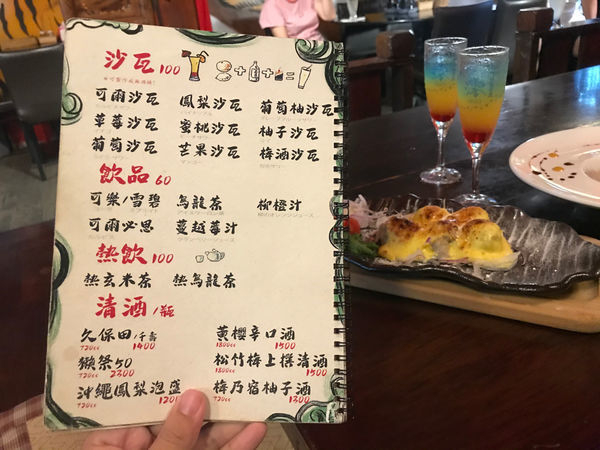 沙瓦 100
可爾沙瓦 鳳梨沙瓦 葡萄柚沙瓦
草莓沙瓦 蜜桃沙瓦 柚子沙瓦
葡萄沙瓦 芒果沙瓦 梅酒沙瓦
飲品 60
可樂/雪碧 烏龍茶 柳橙汁
可爾必思 蔓越莓汁
熱飲 100
熱玄米茶 熱烏龍茶
清酒/瓶
久保田/千壽 黃櫻辛口酒
720cc 1400 1800cc 1500
獺祭50 松竹梅上撰清酒
720cc 2300 1800cc 1500
沖繩鳳梨泡盛 梅乃宿柚子酒
720cc 120 720cc 1300